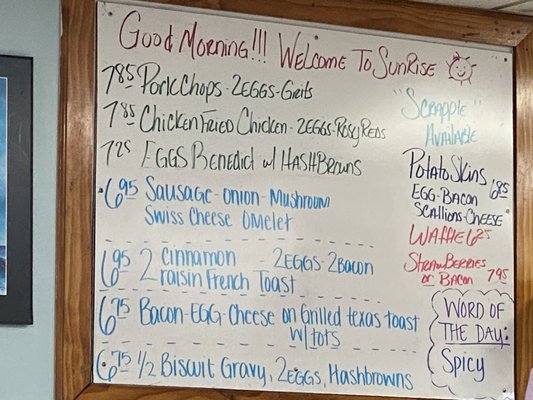 Good Morning!!! Welcome To SunRise
7.85 Pork Chops - 2EGGS - Grits
7.85 Chicken Fried Chicken - 2EGGS - Rosy Reds
7.25 EGGS Benedict w/ HASHBrowns
6.95 Sausage - Onion - Mushroom
Swiss Cheese Omelet
6.95 2 Cinnamon - 2EGGS - 2Bacon
raisin French Toast
6.75 Bacon - EGG - Cheese on Grilled texas toast
w/ tots
6.75 1/2 Biscuit Gravy, 2EGGS, Hashbrowns
"Scrapple"
Available
Potato Skins
6.85
EGG - Bacon
Scallions - Cheese
Waffle 6.25
Strawberries
or Bacon 7.95
Word of
The Day:
Spicy